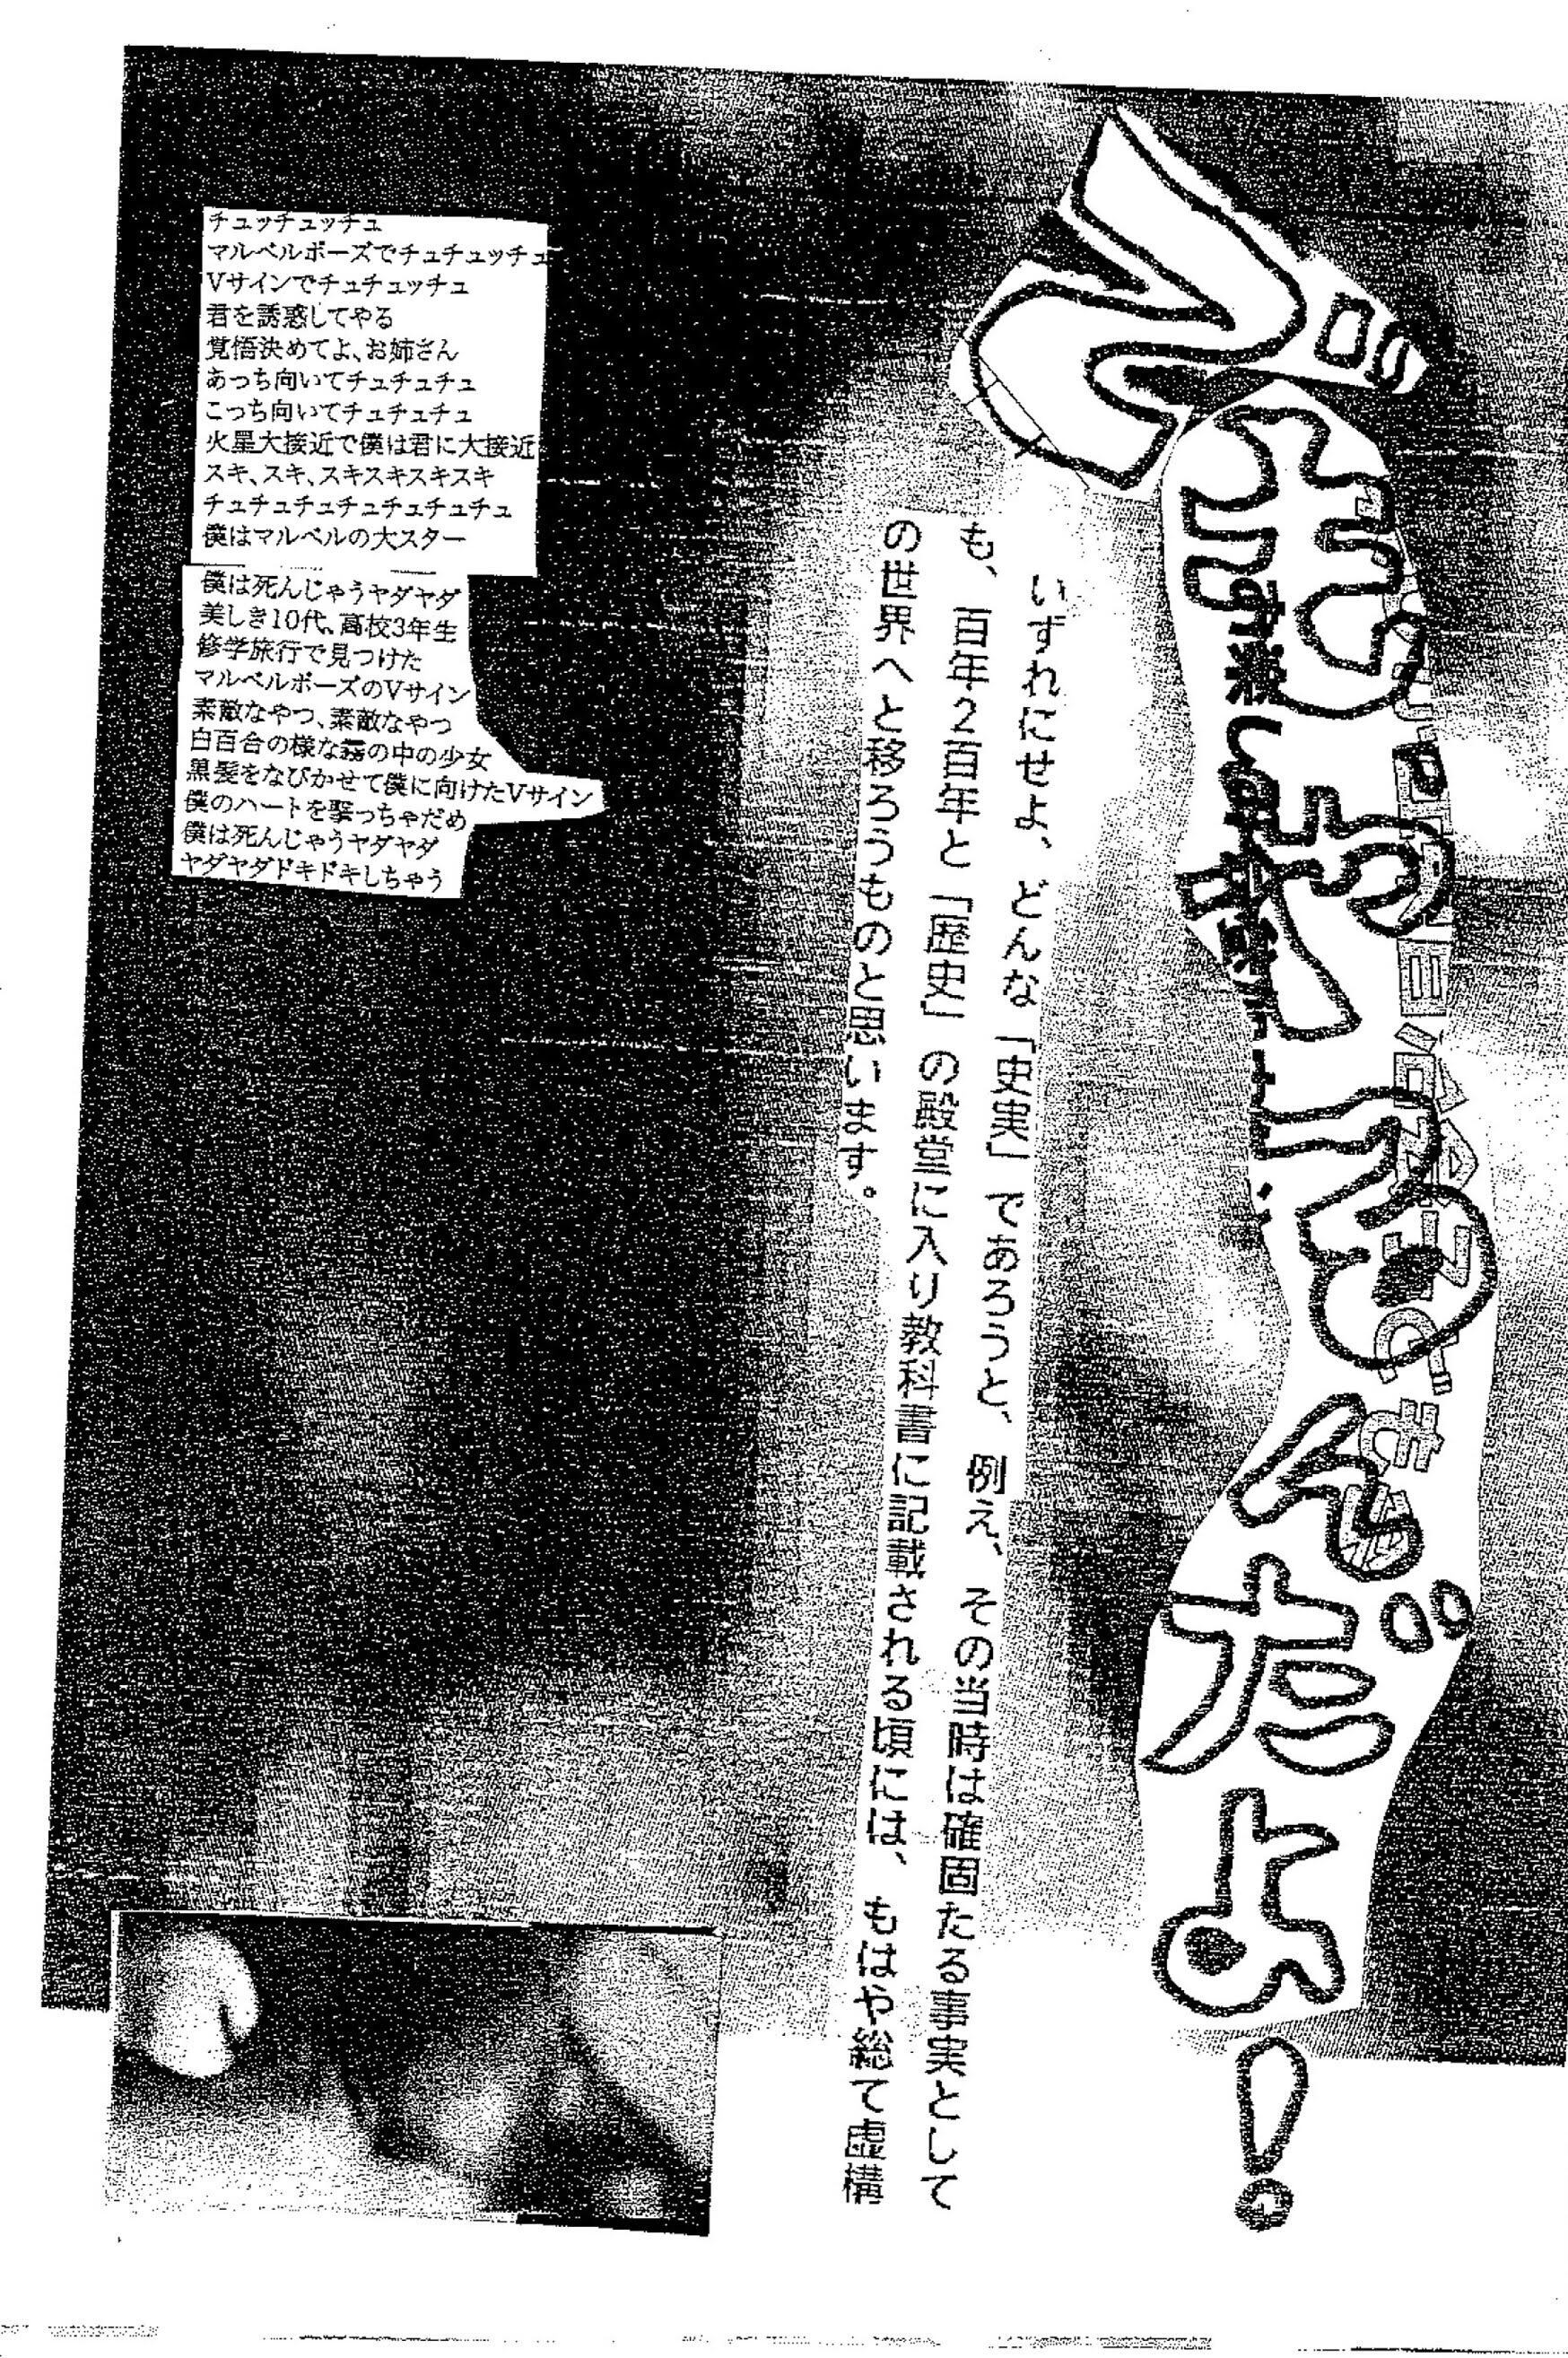 るんだよ!
いずれにせよ、どんな「史実」であろうと、例え、その当時は確固たる事実として
も、百年2百年と「歴史」の殿堂に入り教科書に記載される頃には、もはや総て虚構
の世界へと移ろうものと思います。
チュッチュッチュ
マルベルポーズでチュチュッチュ
Vサインでチュチュッチュ
君を誘惑してやる
覚悟決めてよ、お姉さん
あっち向いてチュチュチュ
こっち向いてチュチュチュ
火星大接近で僕は君に大接近
スキ、スキ、スキスキスキスキ
チュチュチュチュチュチュチュ
僕はマルベルの大スター
僕は死んじゃうヤダヤダ
美しき10代、高校3年生
修学旅行で見つけた
マルベルポーズのVサイン
素敵なやつ、素敵なやつ
白百合の様な霧の中の少女
黒髪をなびかせて僕に向けたVサイン
僕のハートを撃っちゃだめ
僕は死んじゃうヤダヤダ
ヤダヤダドキドキしちゃう